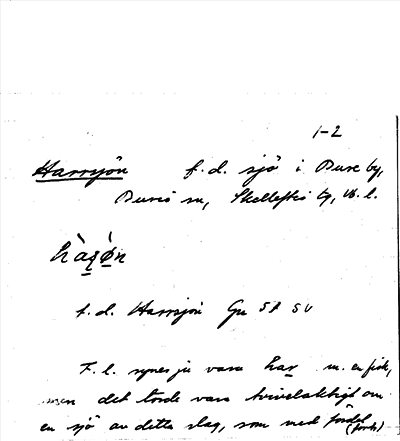 1-2
Harrsjön f.d. sjö i Bure by,
Bureå sn, Skellefteå tg, Vb. l.
f. d. Harrsjön Gu 51 SV
F. l. synes ju vara har m. en fisk,
men det torde vara tvivelaktigt om
en sjö av detta slag, som med fördel